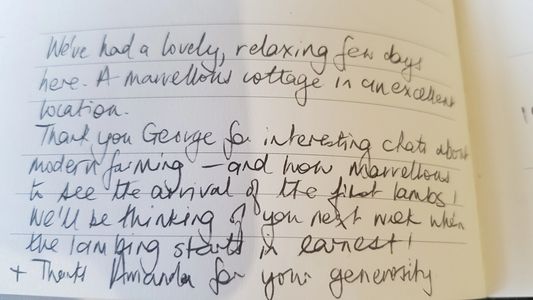 We've had a lovely, relaxing few days
here. A marvellous cottage in an excellent
location.
Thank you George for interesting chats about
modern farming – and how marvellous
to see the arrival of the first lambs!
We'll be thinking of you next week when
the lambing starts in earnest!
+ Thanks Amanda for your generosity